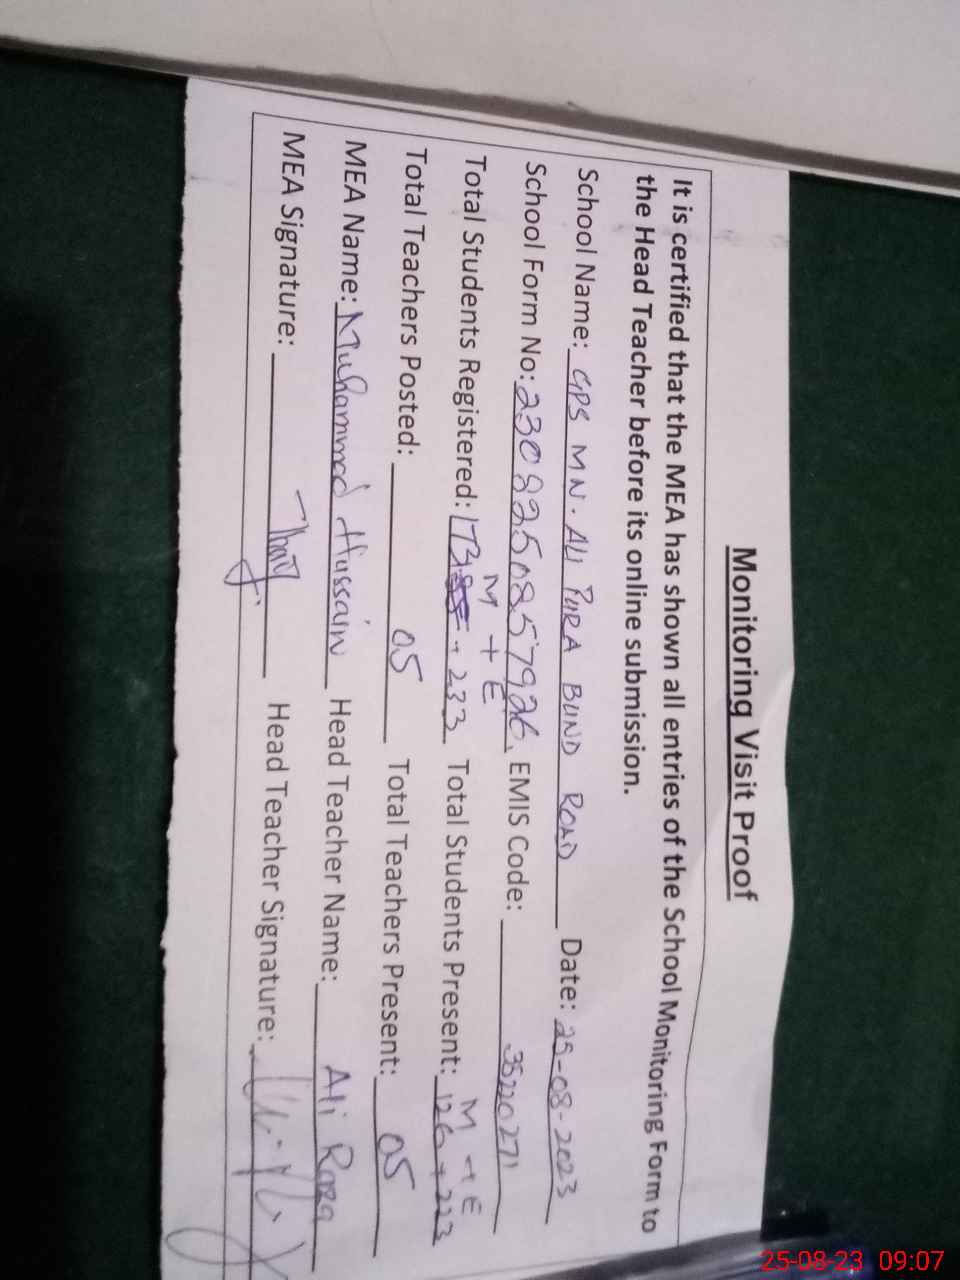 Monitoring Visit Proof
It is certified that the MEA has shown all entries of the School Monitoring Form to
the Head Teacher before its online submission.
School Name: GPS MN. ALI PURA BUND ROAD Date: 25-08-2023
School Form No: 2308250857926. EMIS Code: 35220271
M + E M + E
Total Students Registered: 173 + 233 Total Students Present: 126 + 223
Total Teachers Posted: 05 Total Teachers Present: 05
MEA Name: Muhammad Hussain Head Teacher Name: Ali Raza
MEA Signature: Head Teacher Signature:
25-08-23 09:07